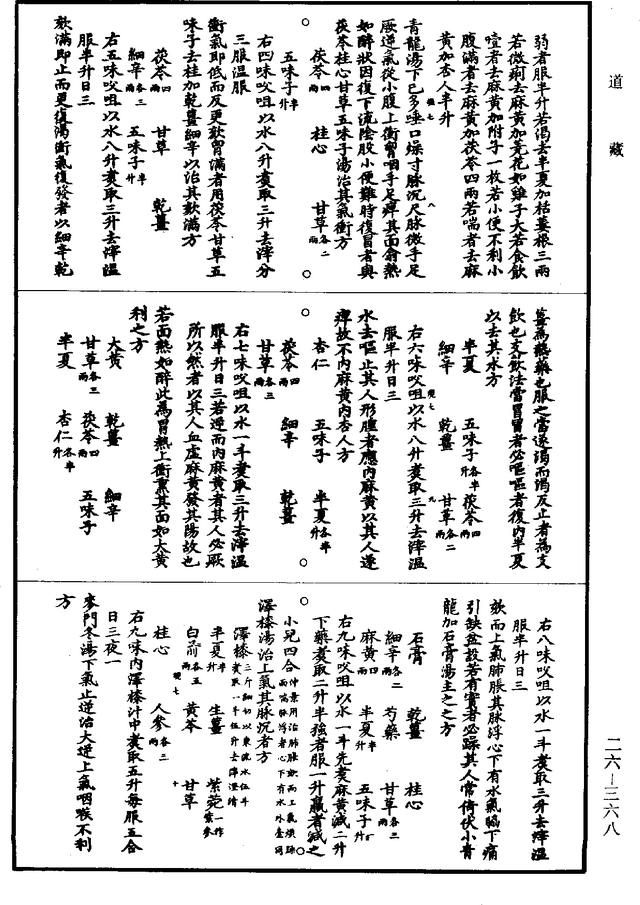 道藏
弱者服半升若渴去半夏加栝蔞根三兩
若微利去麻黃加蕘花如雞子大若食飲
噎者去麻黃加附子一枚若小便不利小
腹滿者去麻黃加茯苓四兩若喘者去麻
黃加杏人半升
青龍湯下已多唾口燥寸脉沉尺脉微手足
厥逆氣從小腹上衝胷咽手足痺其面翕熱
如醉狀因復下流陰股小便難時復冒者與
茯苓桂心甘草五味子湯治其氣衝方
茯苓四兩 桂心 甘草各三兩
五味子半升
右四味㕮咀以水八升煮取三升去滓分
三服溫服
衝氣即低而反更欬胷滿者用茯苓甘草五
味子去桂加乾薑細辛以治其欬滿方
茯苓四兩 甘草 乾薑
細辛各三兩 五味子半升
右五味㕮咀以水八升煮取三升去滓溫
服半升日三
欬滿即止而更復渴衝氣復發者以細辛乾
薑爲熱藥也服之當遂渴而渴反止者爲支
飲也支飲法當冒冒者必嘔嘔者復內半夏
以去其水方
半夏 五味子各半升 茯苓四兩
細辛 乾薑 甘草各二兩
右六味㕮咀以水八升煮取三升去滓溫
服半升日三
水去嘔止其人形腫者應內麻黃以其人遂
痺故不內麻黃內杏人方
杏仁 五味子 半夏各半升
茯苓四兩 細辛 乾薑
甘草各三兩
右七味㕮咀以水一斗煮取三升去滓溫
服半升日三若逆而內麻黃者其人必厥
所以然者以其人血虛麻黃發其陽故也
若面熱如醉此爲胃熱上衝熏其面加大黃
利之方
大黃 乾薑 細辛
甘草各三兩 茯苓四兩 五味子
半夏 杏仁各半升
右八味㕮咀以水一斗煮取三升去滓溫
服半升日三
欬而上氣肺脹其脉浮心下有水氣脇下痛
引缺盆設若有實者必躁其人常倚伏小青
龍加石膏湯主之之方
石膏 乾薑 桂心
細辛各二兩 芍藥 甘草各三兩
麻黃四兩 半夏半升 五味子
右九味㕮咀以水一斗先煮麻黃減二升
下藥煮取二升半強者服一升羸者減之
小兒四合
澤㯶湯治上氣其脉沉者方
澤㯶三斤細切以東流水五斗煮取一斗五升去滓澄清
半夏半升 生薑 紫菀一作紫參
白前各五兩 黃芩 甘草
桂心 人參各三兩
右九味內澤㯶汁中煮取五升每服五合
日三夜一
麥門冬湯下氣止逆治大逆上氣咽喉不利
方
二六—三六八